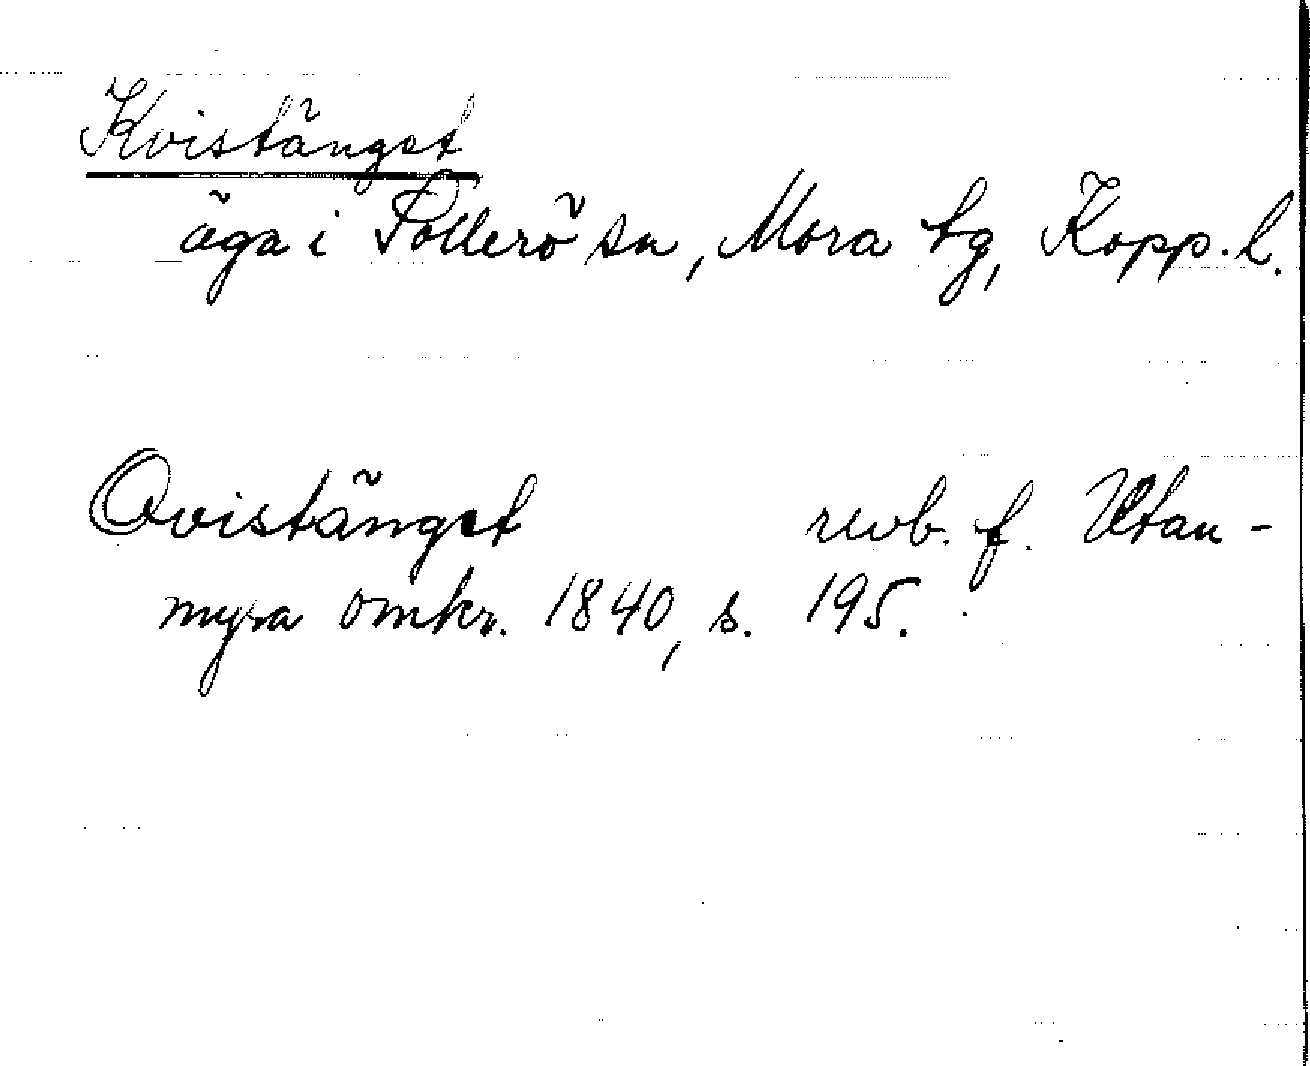 Kvistänget
äga i Sollerö sn, Mora tg, Kopp. l.
Qvistänget revb. f. Utan-
myra omkr. 1840, s. 195.